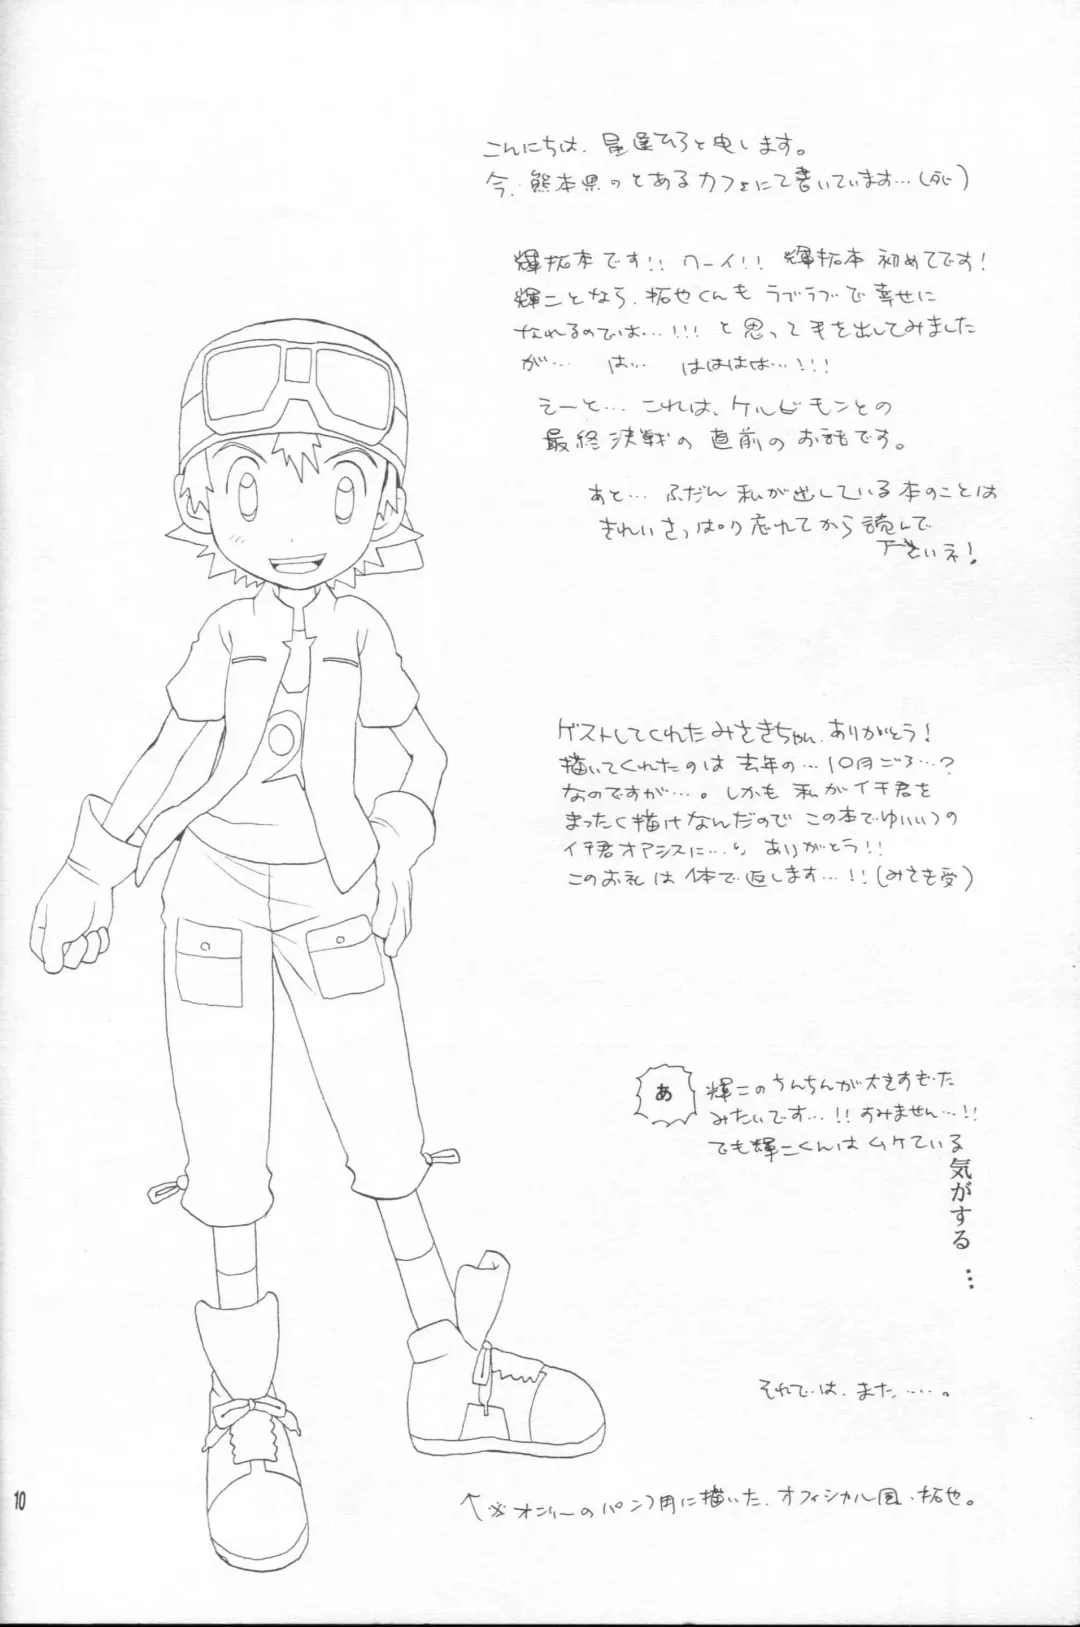 こんにちは、星逢ひろと申します。
今、熊本県のとあるカフェにて書いています…(死)
輝拓本です!! ワーイ!! 輝拓本 初めてです!
輝二となら、拓也くんも ラブラブで幸せに
なれるのでは…!!! と思って手を出してみました
が… は… はははは…!!!
えーと… これは、ケルビモンとの
最終決戦の直前のお話です。
あと… ふだん私が出している本のことは
きれいさっぱり忘れてから読んで
下さいネ!
ゲストしてくれたみさきちゃん、ありがとう!
描いてくれたのは去年の…10月ごろ…?
なのですが…。しかも私がイチ君を
まったく描けなんだので この本でゆいいつの
イチ君オアシスに…。ありがとう!!
それでは、また……。
↑※オンリーのパンフ用に描いた、オフィシャル風、拓也。
10